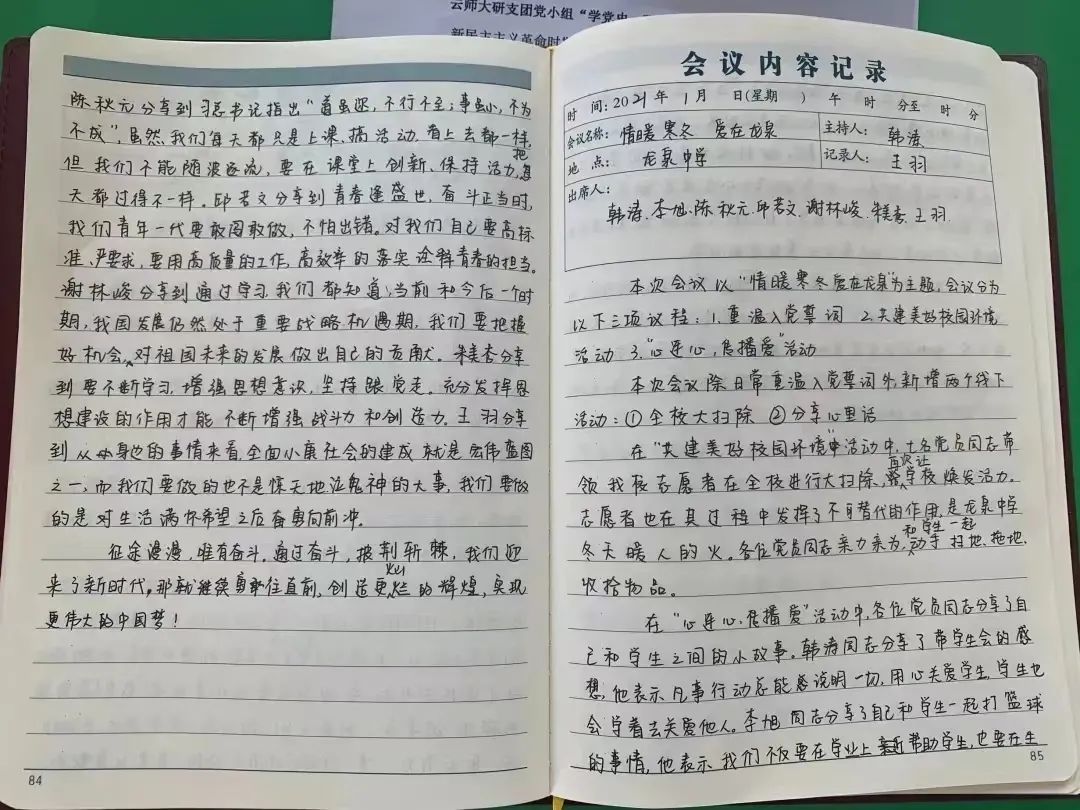 云师大研支团党小组“学党史
新民主主义革命时
陈秋元分享到习总书记指出“道虽迩，不行不至；事虽小，不为
不成”，虽然我们每天都只是上课、搞活动，看上去都一样，
但我们不能随波逐流，要在课堂上创新、保持活力，把每
天都过得不一样。邱若文分享到青春逢盛世，奋斗正当时，
我们青年一代要敢闯敢做，不怕出错。对我们自己要高标
准、严要求，要用高质量的工作，高效率的落实诠释青春的担当。
谢林峻分享到通过学习我们都知道，当前和今后一个时
期，我国发展仍然处于重要战略机遇期，我们要把握
好机会，对祖国未来的发展做出自己的贡献。朱美杏分享
到要不断学习，增强思想意识，坚持跟党走。充分发挥思
想建设的作用才能不断增强战斗力和创造力。王羽分享
到从身边的事情来看，全面小康社会的建成就是宏伟蓝图
之一，而我们要做的也不是惊天地泣鬼神的大事，我们要做
的是对生活满怀希望之后奋勇向前冲。
征途漫漫，唯有奋斗。通过奋斗，披荆斩棘，我们迎
来了新时代，那就继续勇往直前，创造更xuan烂的辉煌，实现
更伟大的中国梦！
84
会议内容记录
时 间：2021年 1月 日（星期 ） 午 时 分至 时 分
会议名称：情暖寒冬 爱在龙泉 主持人：韩涛
地 点：龙泉中学 记录人：王羽
出席人：
韩涛、李旭、陈秋元、邱若文、谢林峻、朱美杏、王羽.
本次会议以“情暖寒冬爱在龙泉”为主题，会议分为
以下三项议程：1.重温入党誓词 2.共建美好校园环境
活动 3.“心连心，传播爱”活动
本次会议除日常重温入党誓词外，新增两个线下
活动：①全校大扫除 ②分享心里话
在“共建美好校园环境”活动中，七名党员同志带
领我校志愿者在全校进行大扫除，再次让学校焕发活力。
志愿者也在其过程中发挥了不可替代的作用，是龙泉中学
冬天暖人的火。各位党员同志亲力亲为，和学生一起动手扫地、拖地、
收拾物品。
在“心连心，传播爱”活动中，各位党员同志分享了自
己和学生之间的小故事。韩涛同志分享了带学生会的感
想，他表示凡事行动总能说明一切，用心关爱学生，学生也
会学着去关爱他人。李旭同志分享了自己和学生一起打篮球
的事情，他表示我们不仅要在学业上帮助学生，也要在生
85